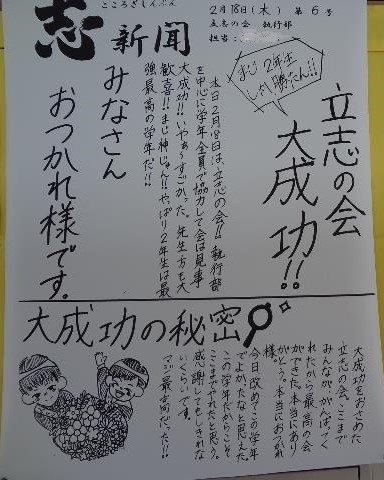 こころざしんぶん
志新聞
2月18日(木) 第6号
立志の会 執行部
担当:
まじ2年生
しか勝たん!!
立志の会
大成功!!
本日2月18日は、立志の会!!執行部
を中心に学年全員で協力して会は見事
大成功!!いやぁ〜すごかった。先生方も大
歓喜!!まじ神じゃん!!やっぱり2年生は最
強最高の学年だ!!
みなさん
おつかれ様です。
大成功の秘密
大成功をおさめた
立志の会。ここまで
みんながんばってく
れたから最高の会
ができた。本当にあり
がとう。本当におつかれ
様。
今日、改めてこの学年
でよかったなと思えた。
この学年だからこそ
ここまでやれたと思う。
感謝してもしきれな
いくらいです。
マジ最高だった!!